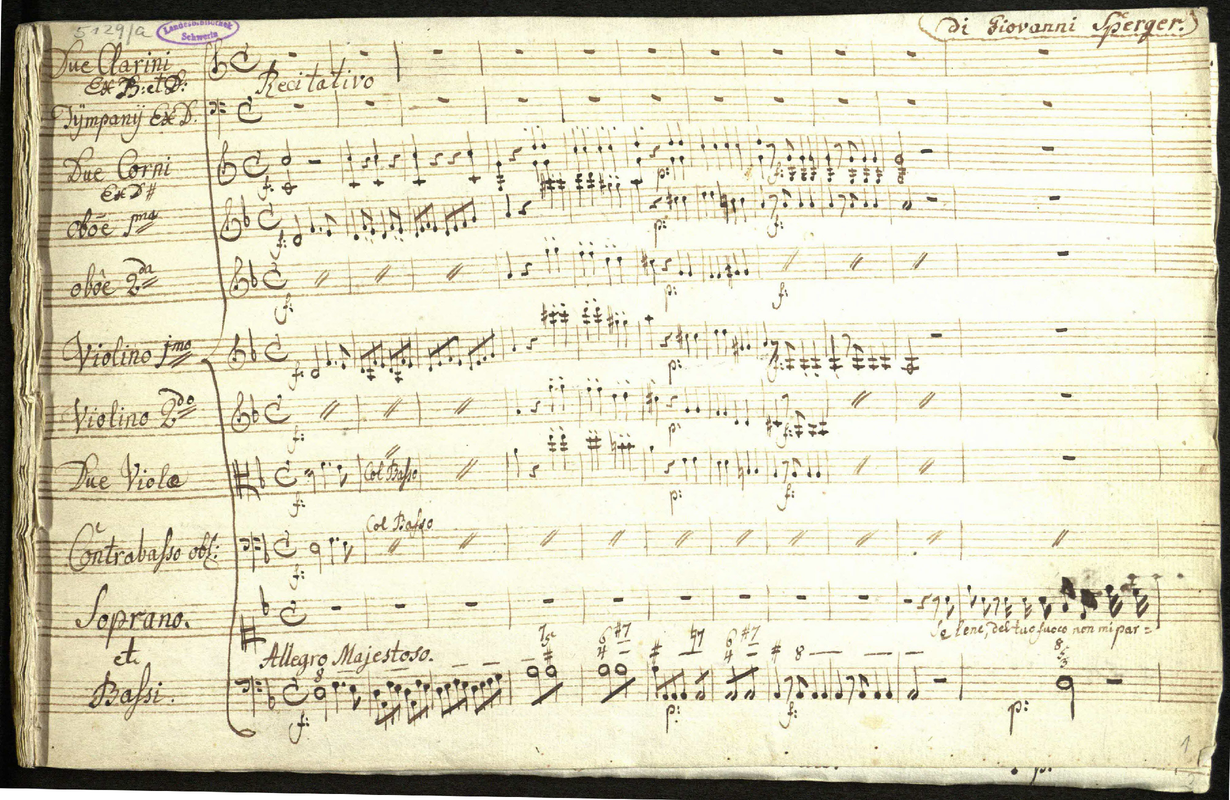 5129/a
Landesbibliothek
Schwerin
di Giovanni Sperger.
Due Clarini
Ex B: et D:
Recitativo
Tÿmpanÿ Ex D.
Due Corni
Ex D#
f:
p:
f:
oboe 1mo
f:
p:
f:
oboe 2da
f:
p:
f:
Violino 1mo
f:
p:
f:
Violino 2do
f:
p:
f:
Due Viole
Col Basso
f:
p:
f:
Contrabasso obl:
Col Basso
f:
Soprano.
Selene, del tuo fuoco non mi par=
et
Allegro Majestoso.
Bassi.
f:
p:
f:
p:
1